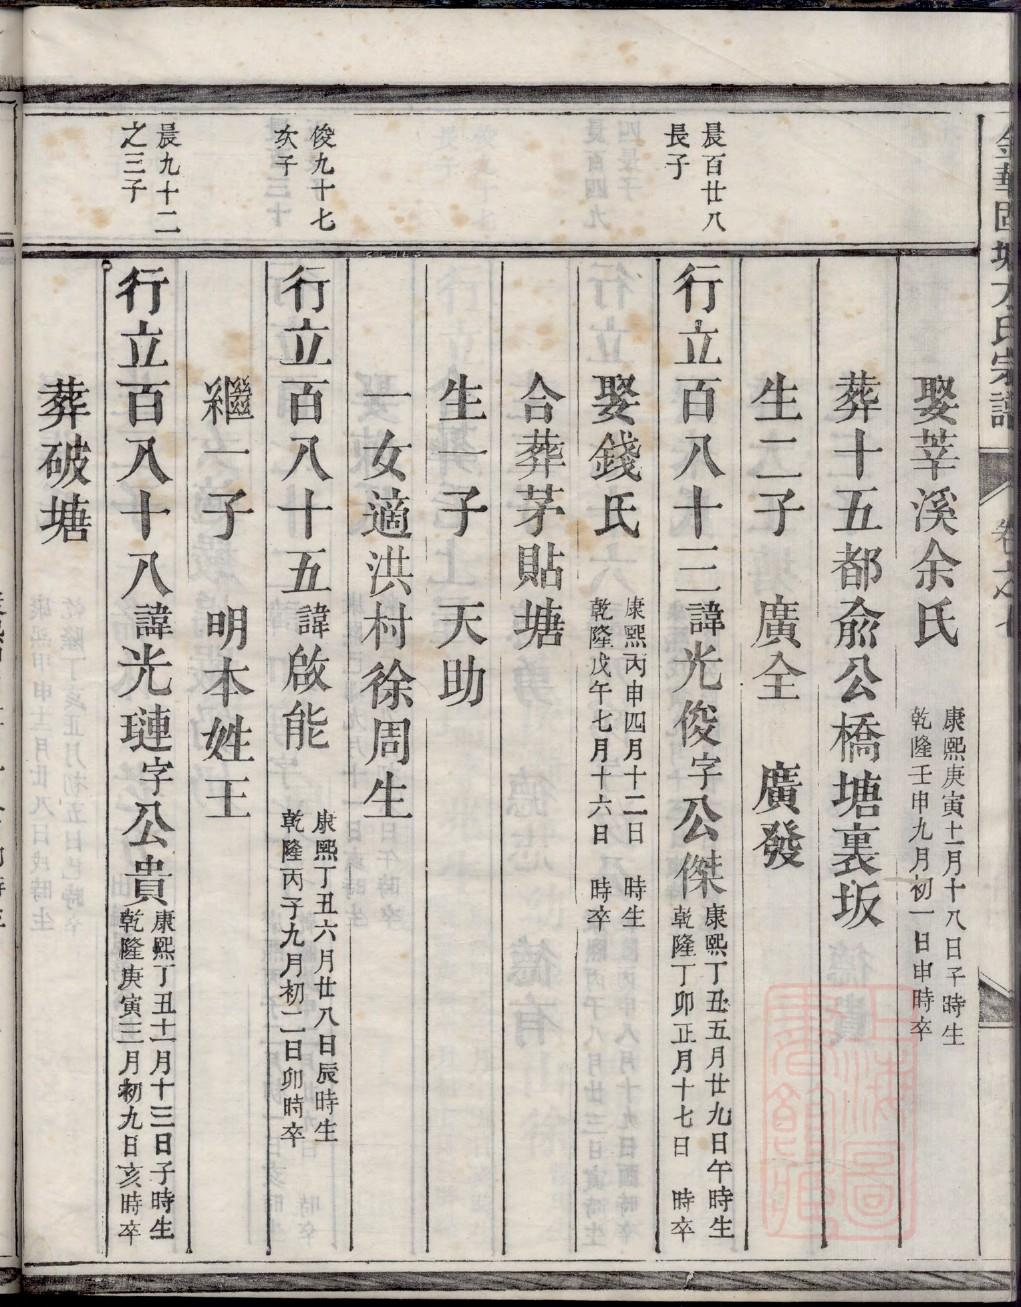 金華國塘方氏宗譜
卷之七
娶莘溪余氏
康熙庚寅十一月十八日子時生
乾隆壬申九月初一日申時卒
葬十五都俞公橋塘裏坂
生二子 廣全 廣發
晨百廿八
長子
行立百八十三諱光俊字公傑
康熙丁丑五月廿九日午時生
乾隆丁卯正月十七日 時卒
娶錢氏
康熙丙申四月十二日 時生
乾隆戊午七月十六日 時卒
合葬茅貼塘
生一子 天助
一女適洪村徐周生
俊九十七
次子
行立百八十五諱啟能
康熙丁丑六月廿八日辰時生
乾隆丙子九月初二日卯時卒
繼一子 明本姓王
晨九十二
之三子
行立百八十八諱光璉字公貴
康熙丁丑十一月十三日子時生
乾隆庚寅三月初九日亥時卒
葬破塘